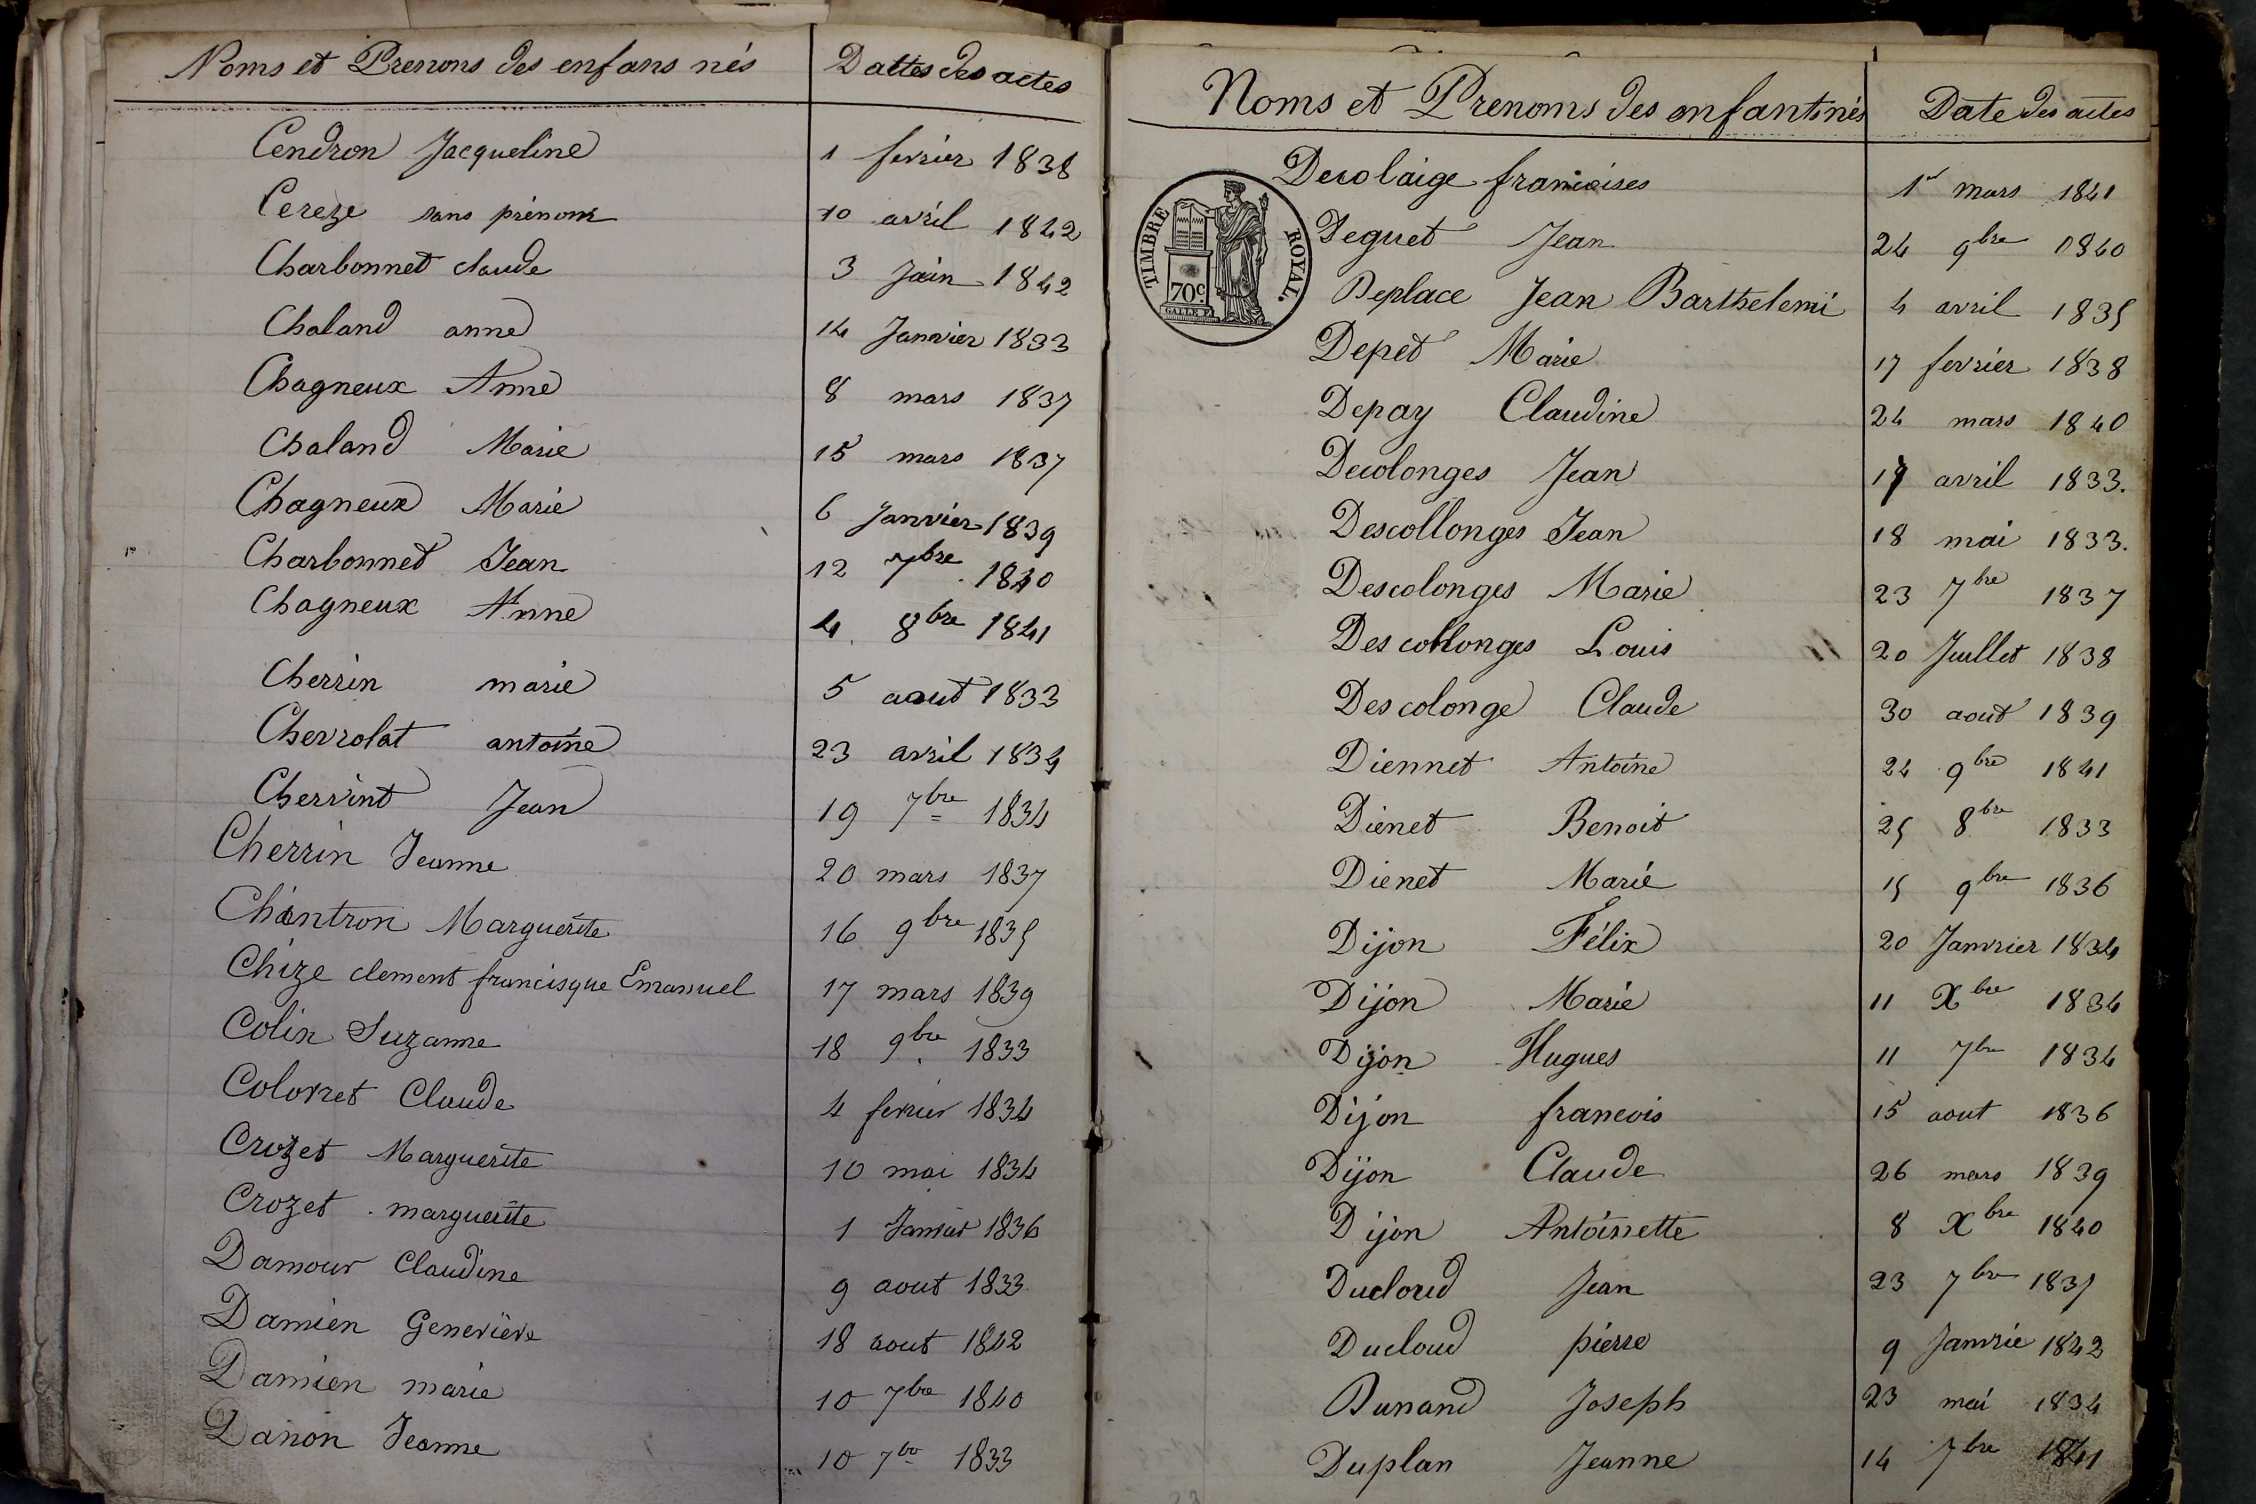 Noms et Prenoms des enfans nés Dattes des actes
Cendron Jacqueline 1 fevrier 1838
Cereze sans prénom 10 avril 1842
Charbonnet claude 3 Juin 1842
Chaland anne 14 Janvier 1833
Chagneux Anne 8 mars 1837
Chaland Marie 15 mars 1837
Chagneux Marie 6 Janvier 1839
Charbonnet Jean 12 7bre 1840
Chagneux Anne 4 8bre 1841
Cherrin marie 5 aout 1833
Chevrolat antoine 23 avril 1834
Chervint Jean 19 7bre 1834
Cherrin Jeanne 20 mars 1837
Chantron Marguerite 16 9bre 1835
Chize clement francisque Emanuel 17 mars 1839
Colin Suzanne 18 9bre 1833
Colonet Claude 4 fevrier 1834
Crozet Marguerite 10 mai 1834
Crozet marguerite 1 Janvier 1836
Damour Claudine 9 aout 1833
Damien Geneviève 18 aout 1842
Damien marie 10 7bre 1840
Danon Jeanne 10 7bre 1833
Noms et Prenoms des enfants nés Date des actes
Decolaige francoises 1er mars 1841
TIMBRE ROYAL.
70c.
GALLE F.
Deguet Jean 24 9bre 1840
Deplace Jean Barthelemi 4 avril 1835
Depet Marie 17 fevrier 1838
Depay Claudine 24 mars 1840
Decolonges Jean 17 avril 1833.
Descollonges Jean 18 mai 1833.
Descolonges Marie 23 7bre 1837
Descollonges Louis 20 Juillet 1838
Descolonge Claude 30 aout 1839
Diennet Antoine 24 9bre 1841
Dienet Benoit 25 8bre 1833
Dienet Marie 15 9bre 1836
Dijon Félix 20 Janvrier 1834
Dijon Marie 11 Xbre 1834
Dijon Hugues 11 7bre 1834
Dijon francois 15 aout 1836
Dijon Claude 26 mars 1839
Dijon Antoinette 8 Xbre 1840
Ducloud Jean 23 7bre 1835
Ducloud pierre 9 Janvrie 1842
Dunand Joseph 23 mai 1834
Duplan Jeanne 14 7bre 1841